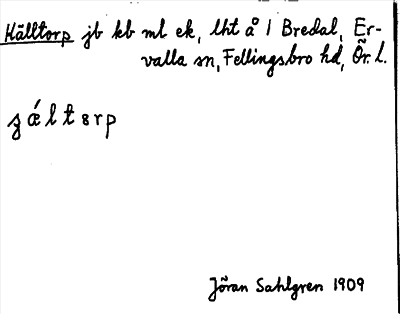 Källtorp jb kb ml ek, lht å 1 Bredal, Er-
valla sn, Fellingsbro hd, Ör. l.
ʂǽltɞrp
Jöran Sahlgren 1909